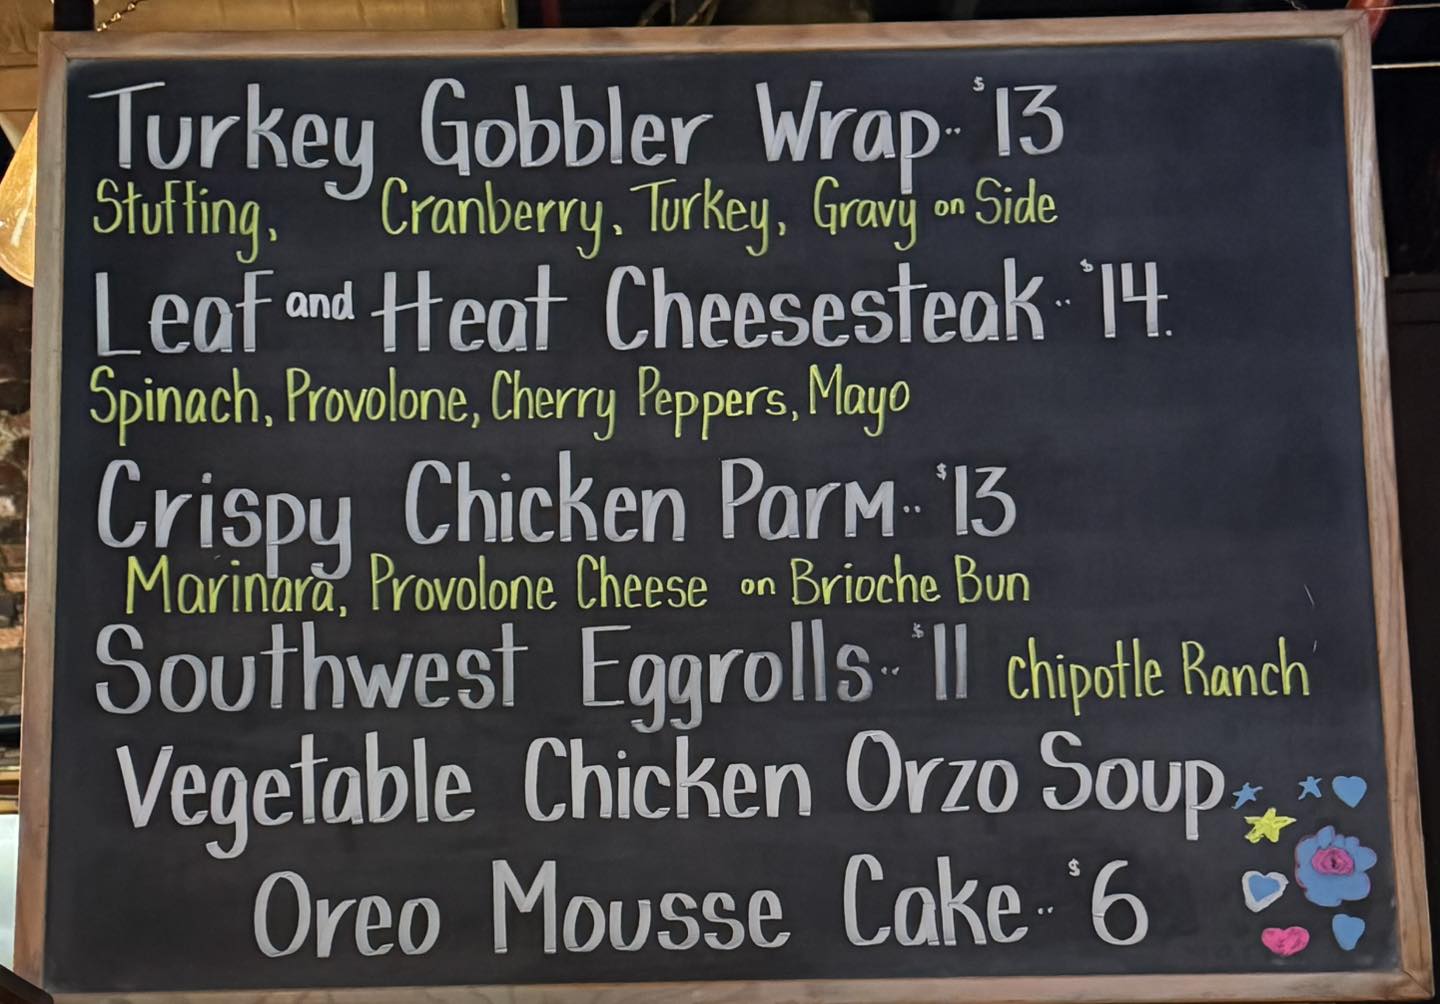 Turkey Gobbler Wrap.. $13
Stuffing, Cranberry, Turkey, Gravy on Side
Leaf and Heat Cheesesteak.. $14.
Spinach, Provolone, Cherry Peppers, Mayo
Crispy Chicken Parm.. $13
Marinara, Provolone Cheese on Brioche Bun
Southwest Eggrolls.. $11 chipotle Ranch
Vegetable Chicken Orzo Soup
Oreo Mousse Cake.. $6